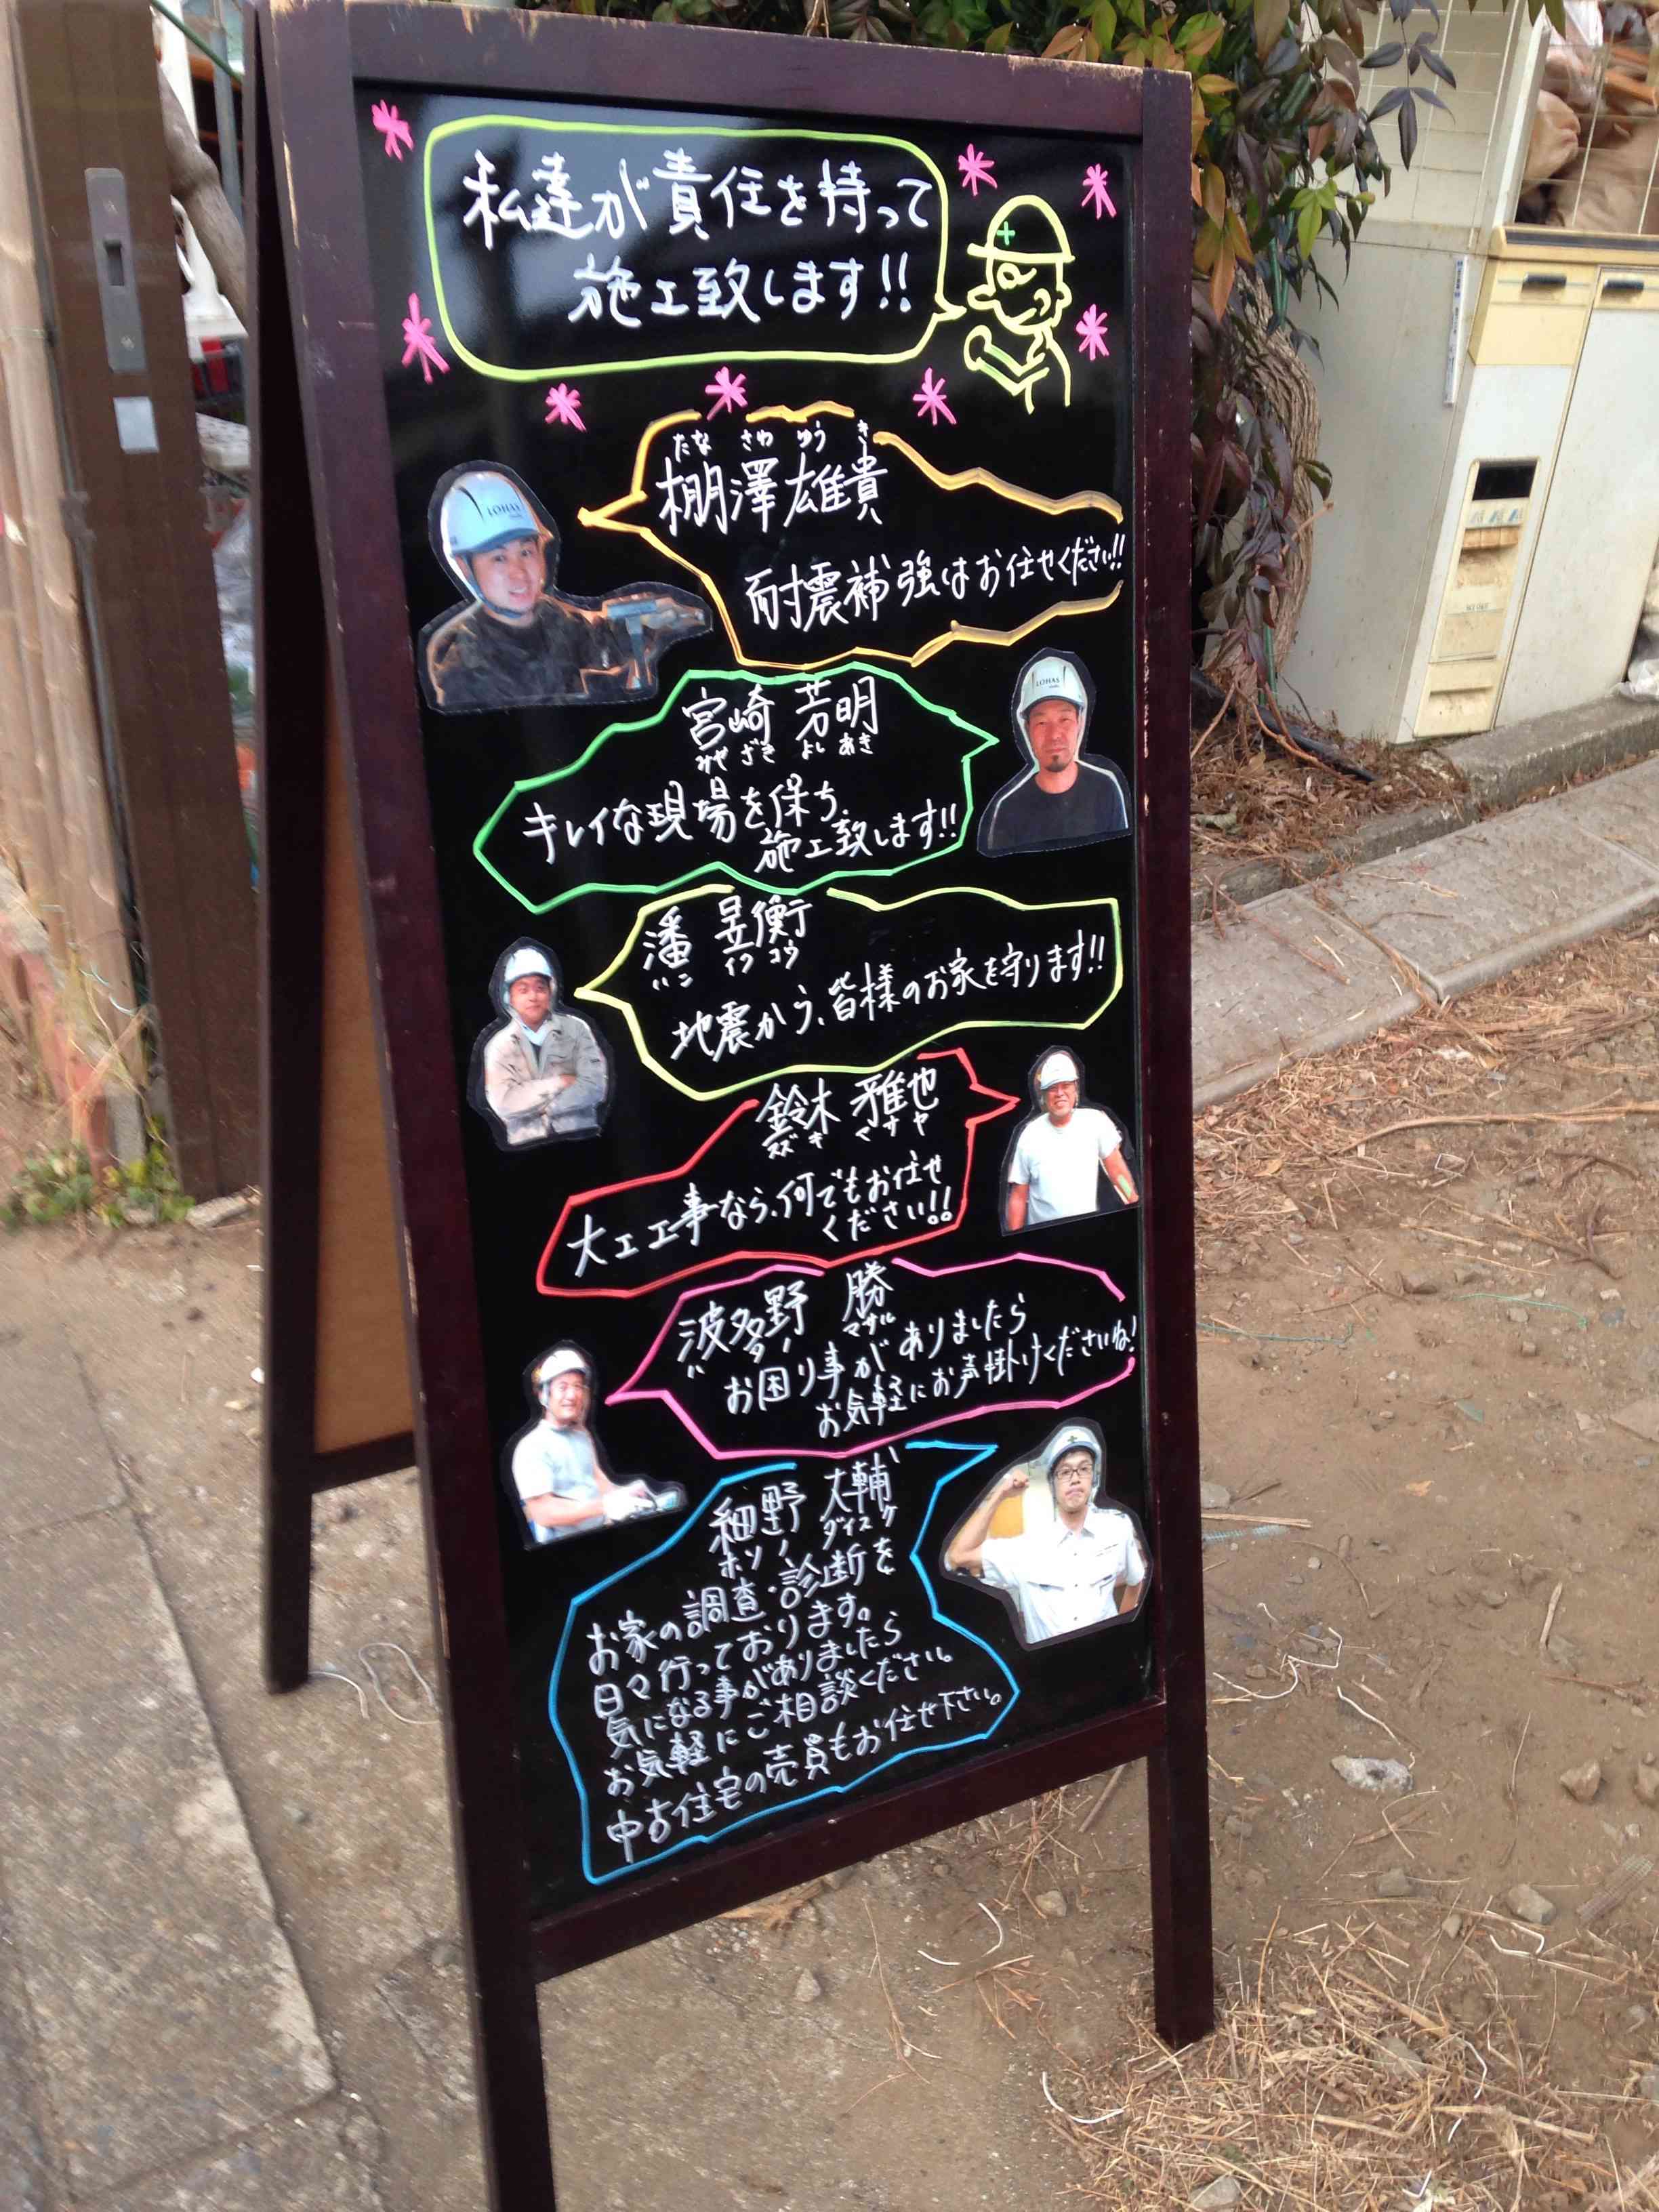 私達が責任を持って
施工致します!!
たな さわ ゆう き
棚澤 雄貴
耐震補強はお任せください!!
LOHAS
宮崎 芳明
みやざき よしあき
キレイな現場を保ち、
施工致します!!
LOHAS
潘 昱衡
ハン イク コウ
地震から、皆様のお家を守ります!!
鈴木 雅也
スズキ マサヤ
大工工事なら、何でもお任せ
ください!!
波多野 勝
ハタノ マサル
お困り事がありましたら
お気軽にお声掛けくださいね!
細野 大輔
ホソノ ダイスケ
お家の調査・診断を
日々行っております。
気になる事がありましたら
お気軽にご相談ください。
中古住宅の売買もお任せ下さい。